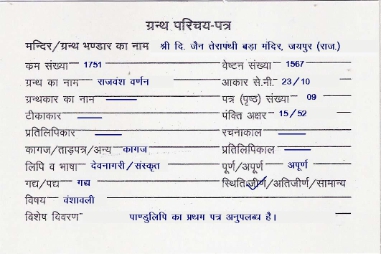 ग्रन्थ परिचय-पत्र
मन्दिर/ग्रन्थ भण्डार का नाम श्री दि. जैन तेरापंथी बड़ा मंदिर, जयपुर (राज.)
क्रम संख्या 1751 वेष्टन संख्या 1567
ग्रन्थ का नाम राजवंश वर्णन आकार से.मी. 23/10
ग्रन्थकार का नाम — पत्र (पृष्ठ) संख्या 09
टीकाकार — पंक्ति अक्षर 15/52
प्रतिलिपिकार — रचनाकाल —
कागज/ताड़पत्र/अन्य कागज प्रतिलिपिकाल —
लिपि व भाषा देवनागरी/संस्कृत पूर्ण/अपूर्ण अपूर्ण
गद्य/पद्य गद्य स्थिति जीर्ण/अतिजीर्ण/सामान्य
विषय वंशावली
विशेष विवरण पाण्डुलिपि का प्रथम पत्र अनुपलब्ध है।